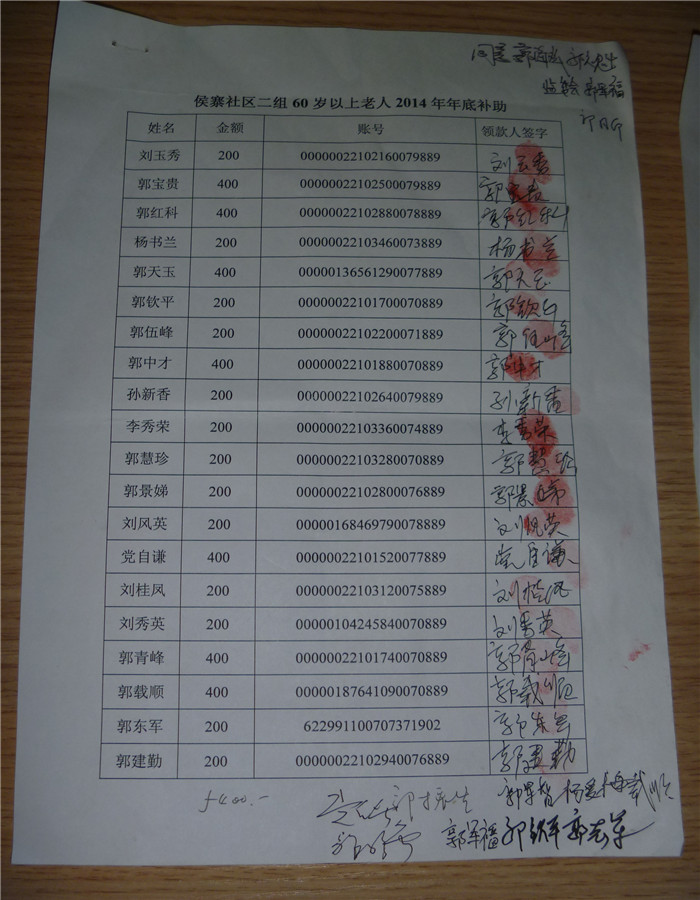 侯寨社区二组 60 岁以上老人 2014 年年底补助
姓名 金额 账号 领款人签字
刘玉秀 200 00000022102160079889 刘玉秀
郭宝贵 400 00000022102500079889 郭宝贵
郭红科 400 00000022102880078889 郭红科
杨书兰 200 00000022103460073889 杨书兰
郭天玉 400 00000136561290077889 郭天玉
郭钦平 200 00000022101700070889 郭钦平
郭伍峰 200 00000022102200071889 郭伍峰
郭中才 400 00000022101880070889 郭中才
孙新香 200 00000022102640079889 孙新香
李秀荣 200 00000022103360074889 李秀荣
郭慧珍 200 00000022103280070889 郭慧珍
郭景娣 200 00000022102800076889 郭景娣
刘风英 200 00000168469790078889 刘风英
党自谦 400 00000022101520077889 党自谦
刘桂凤 200 00000022103120075889 刘桂凤
刘秀英 200 00000104245840070889 刘秀英
郭青峰 400 00000022101740070889 郭青峰
郭载顺 400 00000187641090070889 郭载顺
郭东军 200 622991100707371902 郭东军
郭建勤 200 00000022102940076889 郭建勤
郭军福